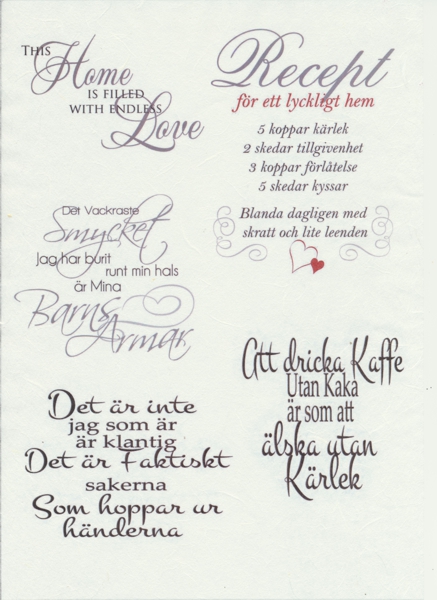 THIS
Home
IS FILLED
WITH ENDLESS
Love
Recept
för ett lyckligt hem
5 koppar kärlek
2 skedar tillgivenhet
3 koppar förlåtelse
5 skedar kyssar
Blanda dagligen med
skratt och lite leenden
Det Vackraste
Smycket
Jag har burit
runt min hals
är Mina
Barns
Armar
Att dricka Kaffe
Utan Kaka
är som att
älska utan
Kärlek
Det är inte
jag som är
är klantig
Det är Faktiskt
sakerna
Som hoppar ur
händerna